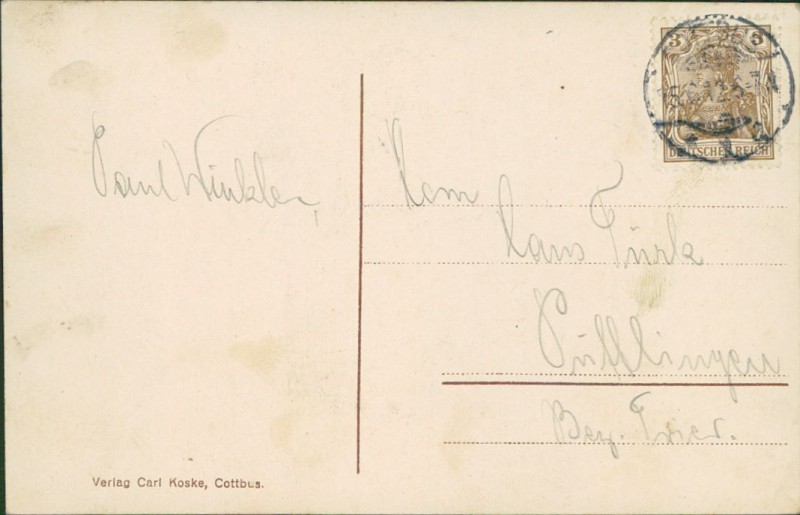 Paul Winkler,
Herrn
Hans Türk
Püttlingen
Bez. Trier.
3 3
DEUTSCHES REICH
Verlag Carl Koske, Cottbus.